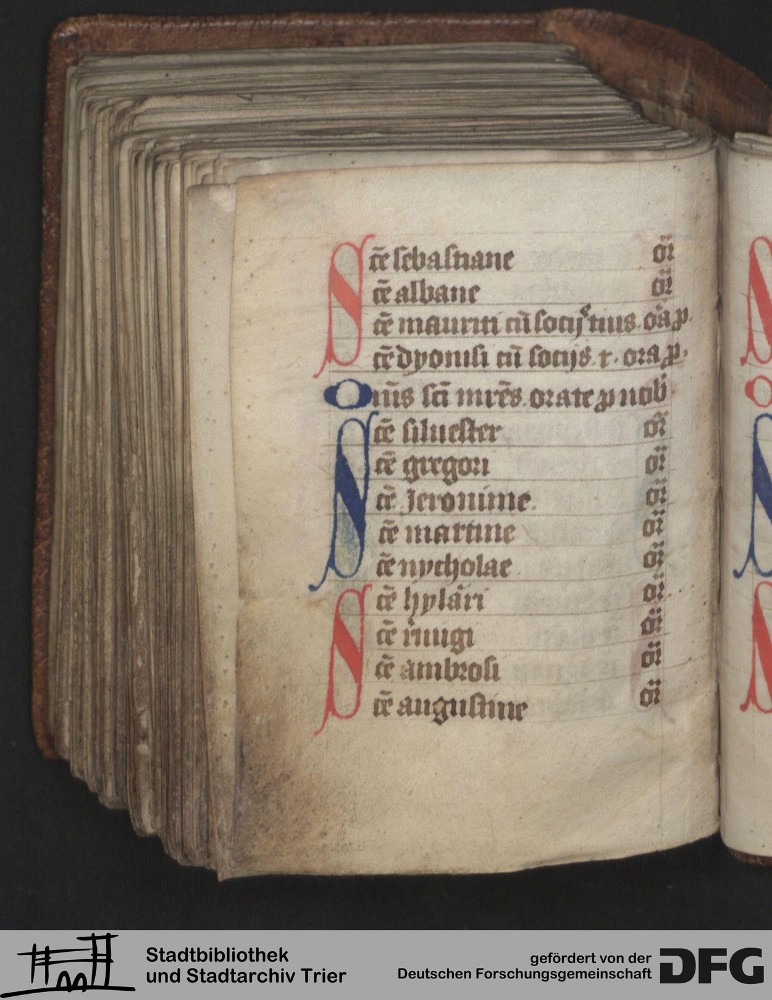 Sc̄e sebastiane or̄
sc̄e albane or̄
sc̄e mauriti cū socijs tuis. ora p.
sc̄e dyonisi cū socijs. t. ora p.
Om̄s sc̄i mr̄es. orate p nob
Sc̄e siluester or̄
sc̄e gregori or̄
sc̄e Jeronime. or̄
sc̄e martine or̄
sc̄e nycholae or̄
Sc̄e hylari or̄
sc̄e remigi or̄
sc̄e ambrosi or̄
sc̄e augustine or̄
Stadtbibliothek
und Stadtarchiv Trier
gefördert von der
Deutschen Forschungsgemeinschaft
DFG